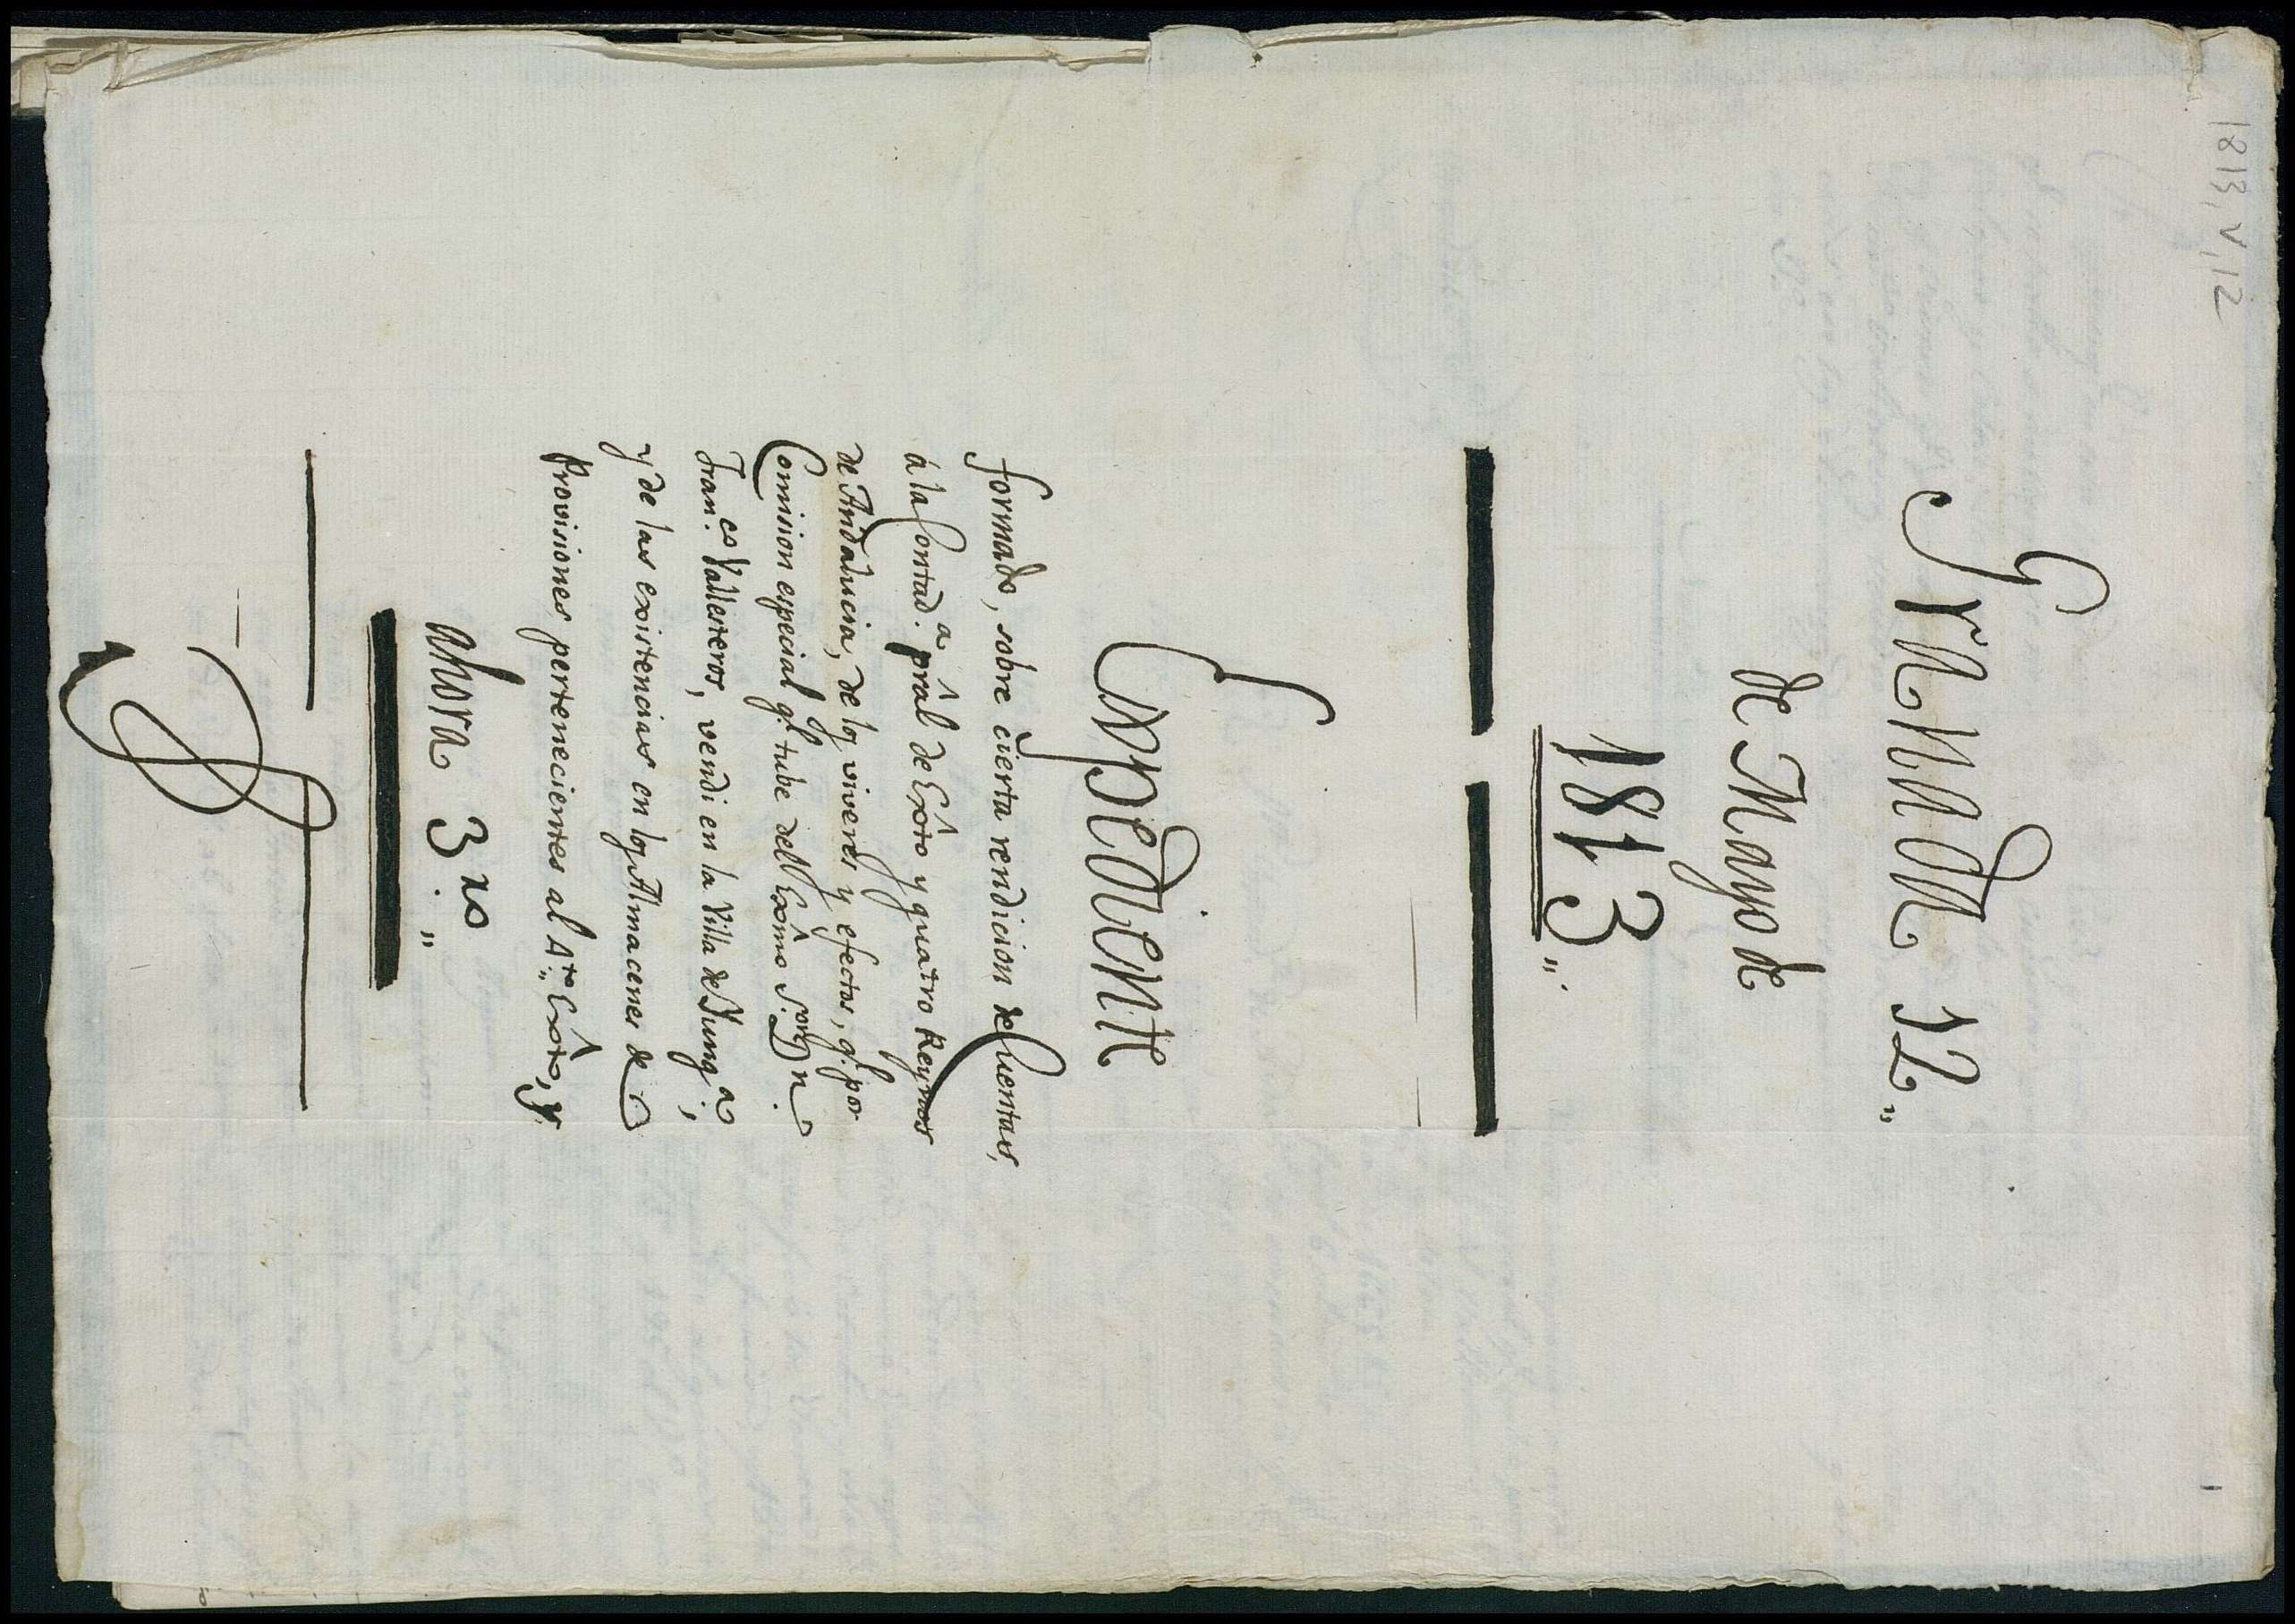 1813, V, 12
Granada 12,,
de Mayo de
1813,,
Expediente
formado, sobre cierta rendicion de Cuentas,
á la Contad.ª prâl de Exto y quatro Reynos
de Andalucia, de los viveres y efectos, q.e por
Comision especial q.e tube del Exômo S.or Dn.
Fran.co Vallesteros, vendi en la Villa de
y de las existencias en los Almacenes de
Provisiones pertenecientes al 4.to Exto, y
ahora 3.ro ,,